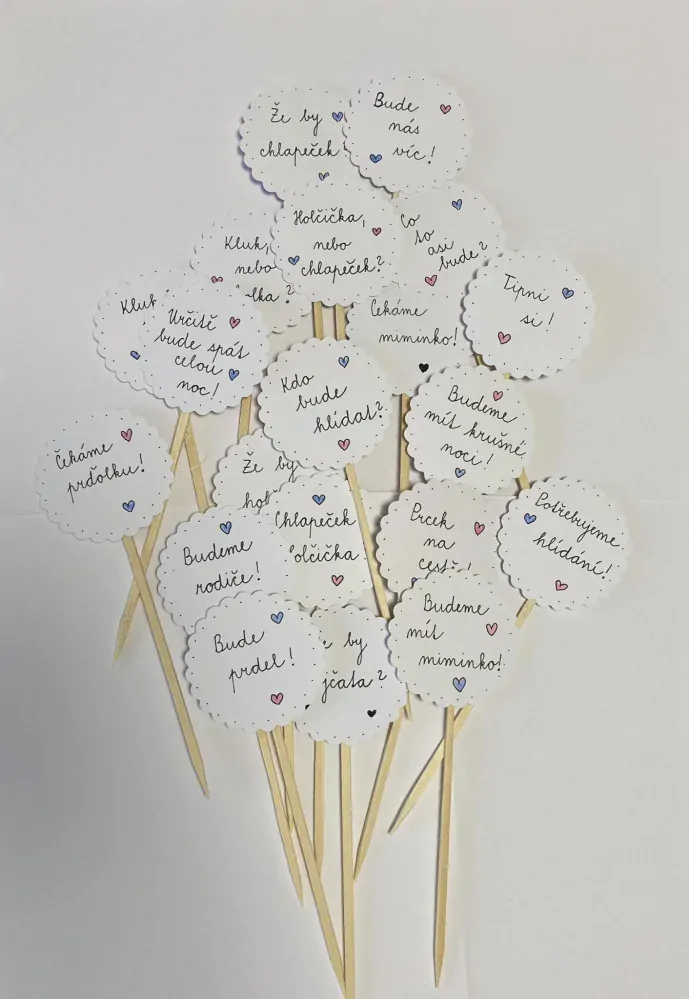 Že by
chlapeček
Bude
nás
víc!
Holčička,
nebo
chlapeček?
Co
to
asi
bude?
Kluk,
nebo
Tipni
si!
Kluk
Určitě
bude spát
celou
noc!
Čekáme
miminko!
Kdo
bude
hlídat?
Budeme
mít krušné
noci!
Čekáme
prďolku!
Že by
Chlapeček
Prcek
na
cestě!
Potřebujeme
hlídání!
Budeme
rodiče!
Budeme
mít
miminko!
Bude
prdel!
by